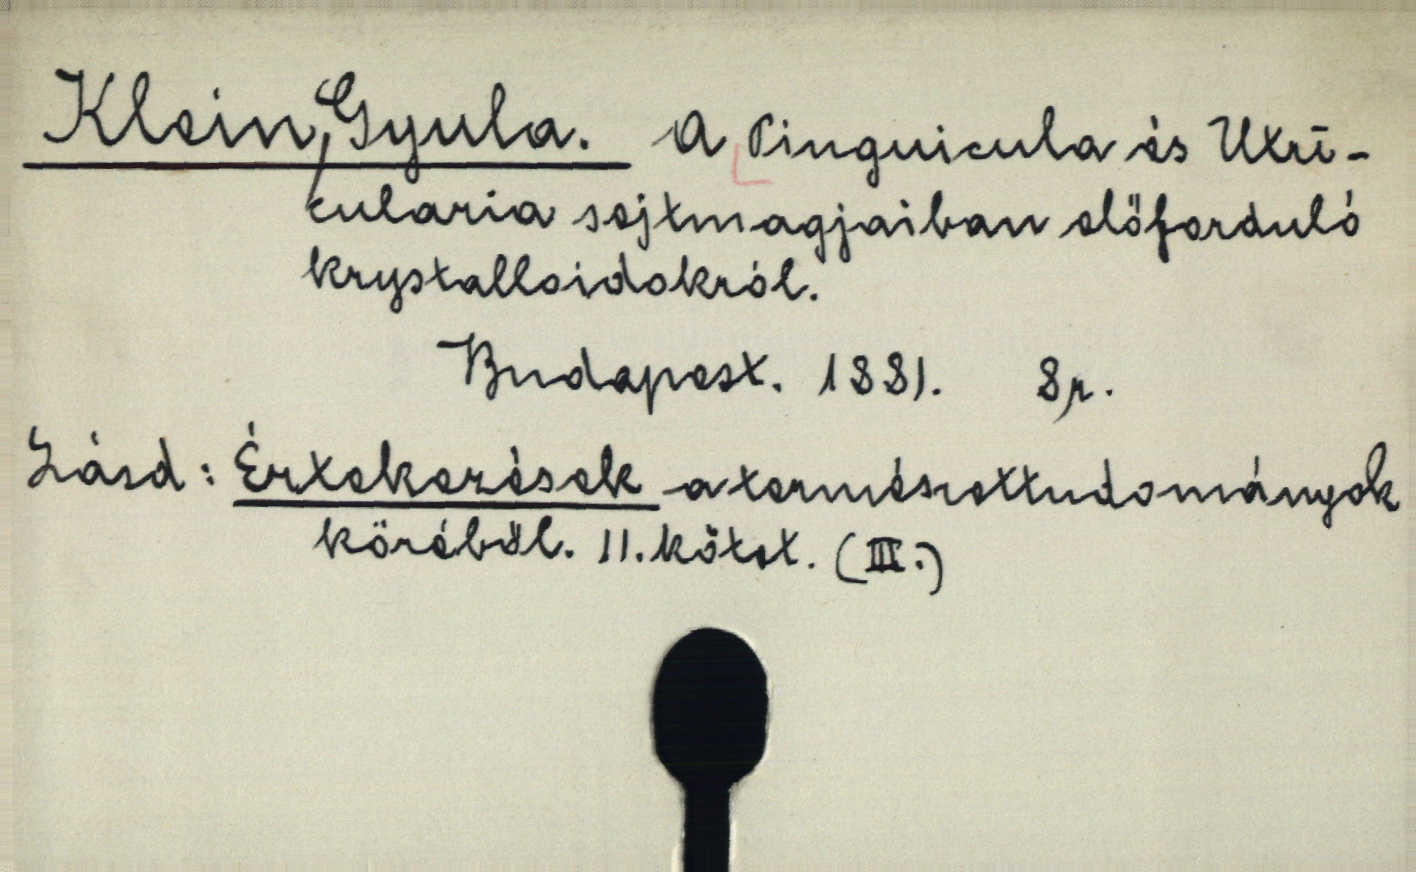 Klein, Gyula. A Pinguicula és Utri-
cularia sejtmagjaiban előforduló
krystalloidokról.
Budapest. 1881. 8r.
Lásd: Értekezések a természettudományok
köréből. 11. kötet. (III.)